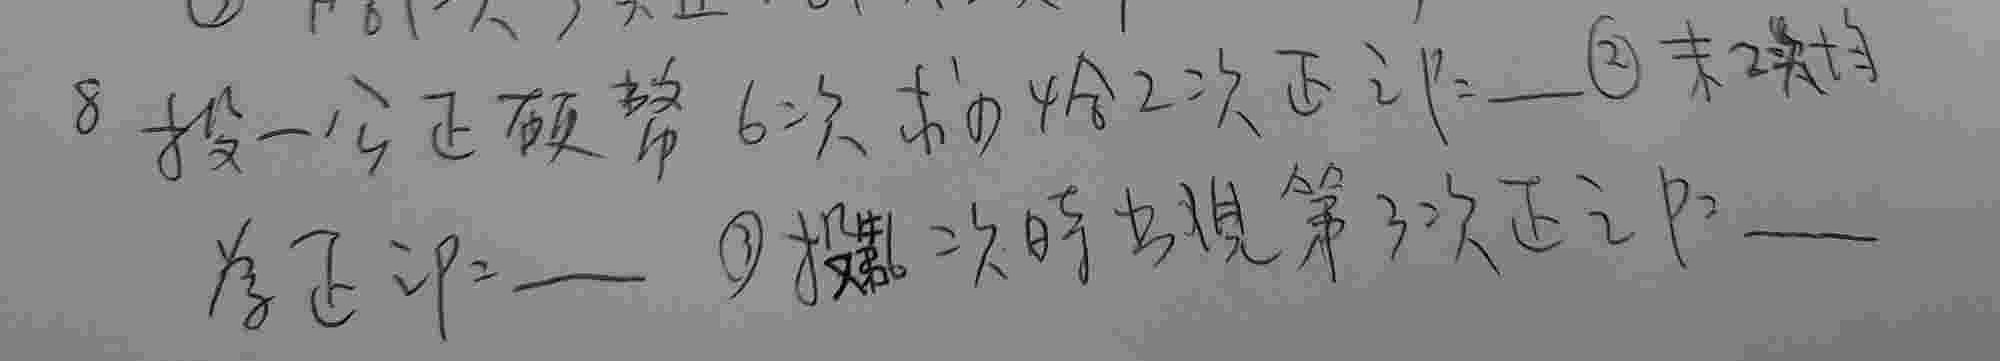 8 投一公正硬幣 6次 求① 恰2次正之P=___ ② 末2次均
為正之P=___ ③ 投第6次時出現第3次正之P=___